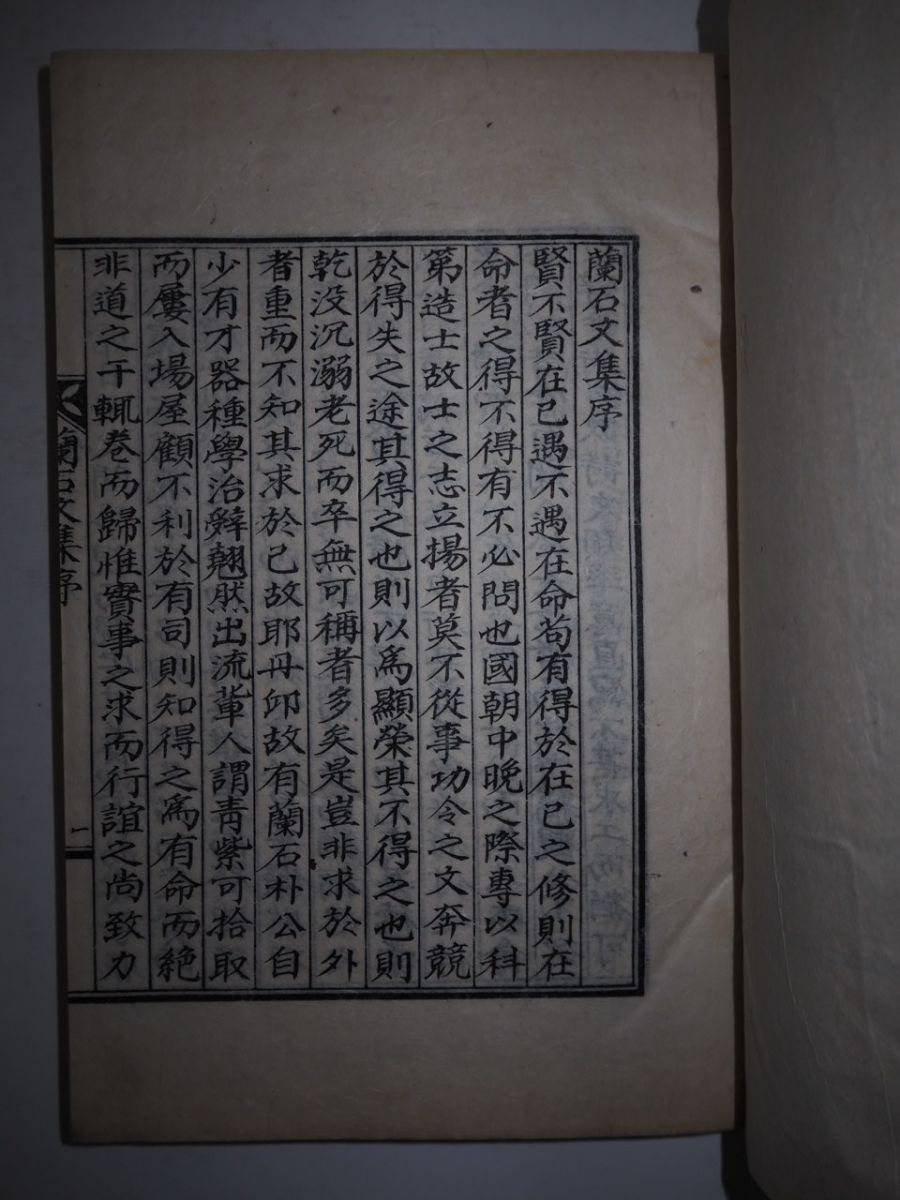 蘭石文集序
賢不賢在已遇不遇在命苟有得於在已之修則在
命者之得不得有不必問也國朝中晩之際專以科
第造士故士之志立揚者莫不從事功令之文奔競
於得失之途其得之也則以爲顯榮其不得之也則
乾没沉溺老死而卒無可稱者多矣是豈非求於外
者重而不知其求於己故耶丹邱故有蘭石朴公自
少有才器種學治辭翹然出流輩人謂靑紫可拾取
而屢入場屋顧不利於有司則知得之爲有命而絶
非道之干輒卷而歸惟實事之求而行誼之尚致力
蘭石文集序
一